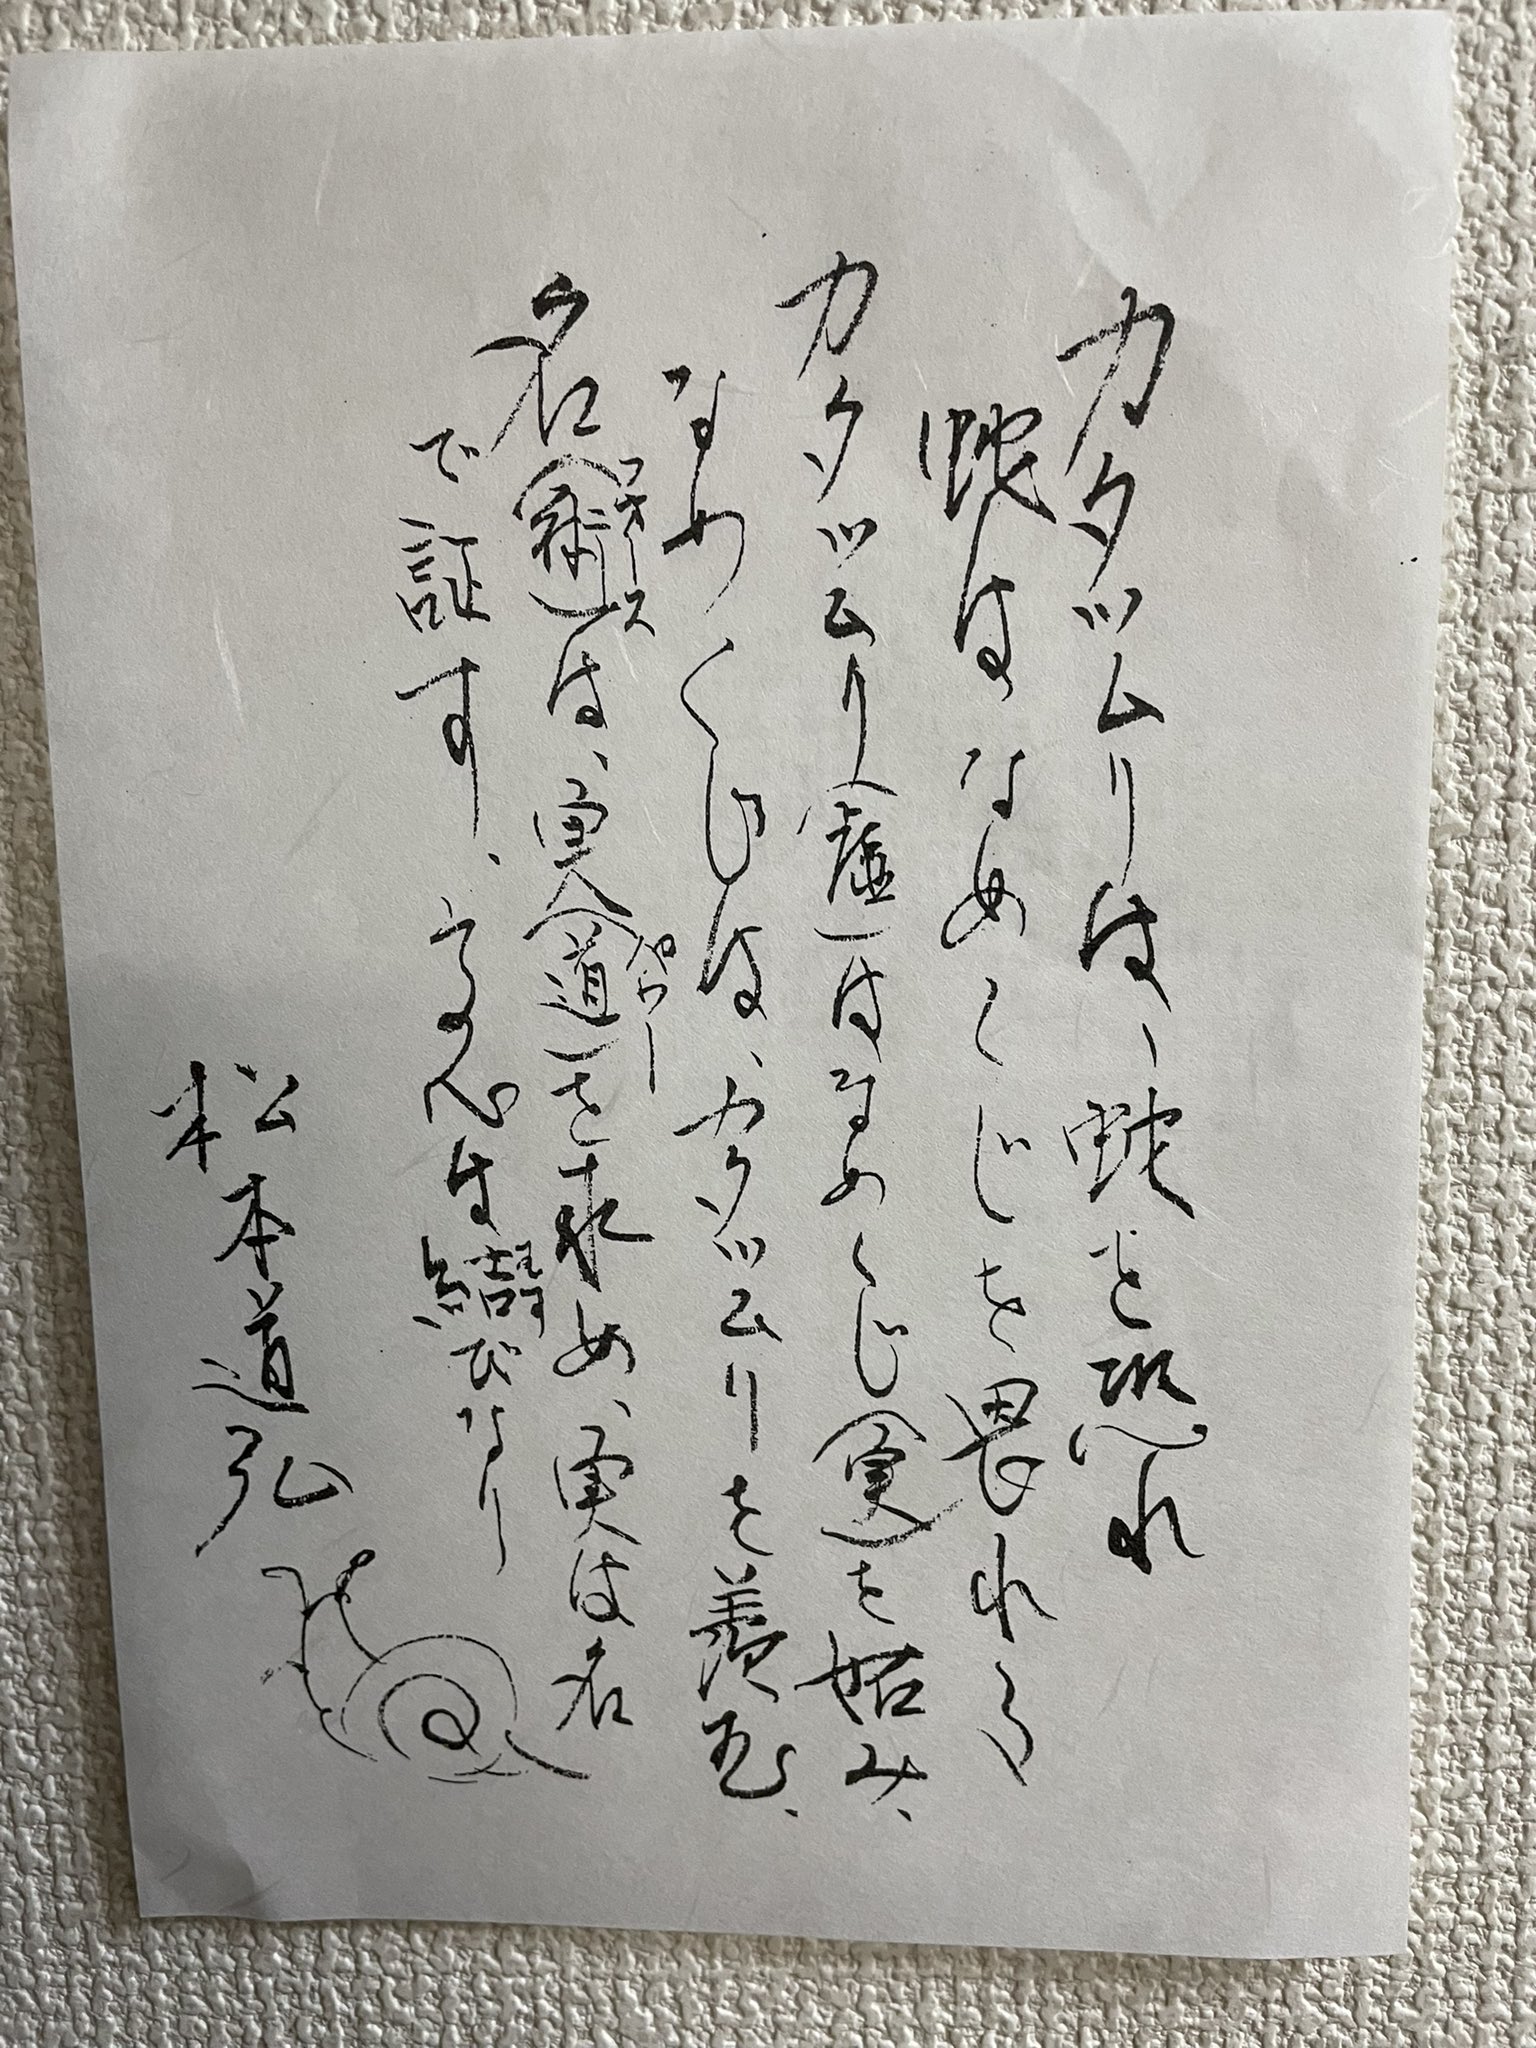 カタツムリは、蛇を恐れ
蛇はなめくじを畏れる
カタツムリ(虚)はなめくじ(実)を妬み、
なめくじは、カタツムリを羨む、
名(術)は、実(道)を求め、実は名
フォース
パワー
で証す、言忍は結びなり
松本道弘